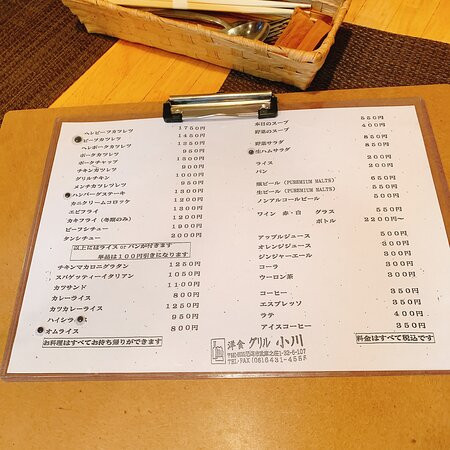 ヘレビーフカツレツ 1750円
ビーフカツレツ 1450円
ヘレポークカツレツ 1250円
ポークカツレツ 950円
ポークチャップ 1000円
チキンカツレツ 900円
グリルチキン 900円
メンチカツレツ
ハンバーグステーキ
カニクリームコロッケ
エビフライ
カキフライ (冬期のみ)
ビーフシチュー 1900円
タンシチュー 2000円
以上にはライス or パンが付きます
単品は100円引きになります
チキンマカロニグラタン 1250円
スパゲッティーイタリアン 1050円
カツサンド 1100円
カレーライス 800円
カツカレーライス 1250円
ハイシライス 950円
オムライス 800円
お料理はすべてお持ち帰りができます
本日のスープ 550円
野菜のスープ 400円
野菜サラダ 850円
生ハムサラダ 850円
ライス 200円
パン 200円
瓶ビール (PUREMIUM MALTS) 550円
生ビール (PUREMIUM MALTS)
ノンアルコールビール
ワイン 赤・白 グラス 550円
ボトル 2200円〜
アップルジュース 350円
オレンジジュース 350円
ジンジャーエール 300円
コーラ 300円
ウーロン茶 300円
コーヒー 350円
エスプレッソ 350円
ラテ 400円
アイスコーヒー 350円
料金はすべて税込です
洋食 グリル 小川
TEL・FAX (06)6431-456